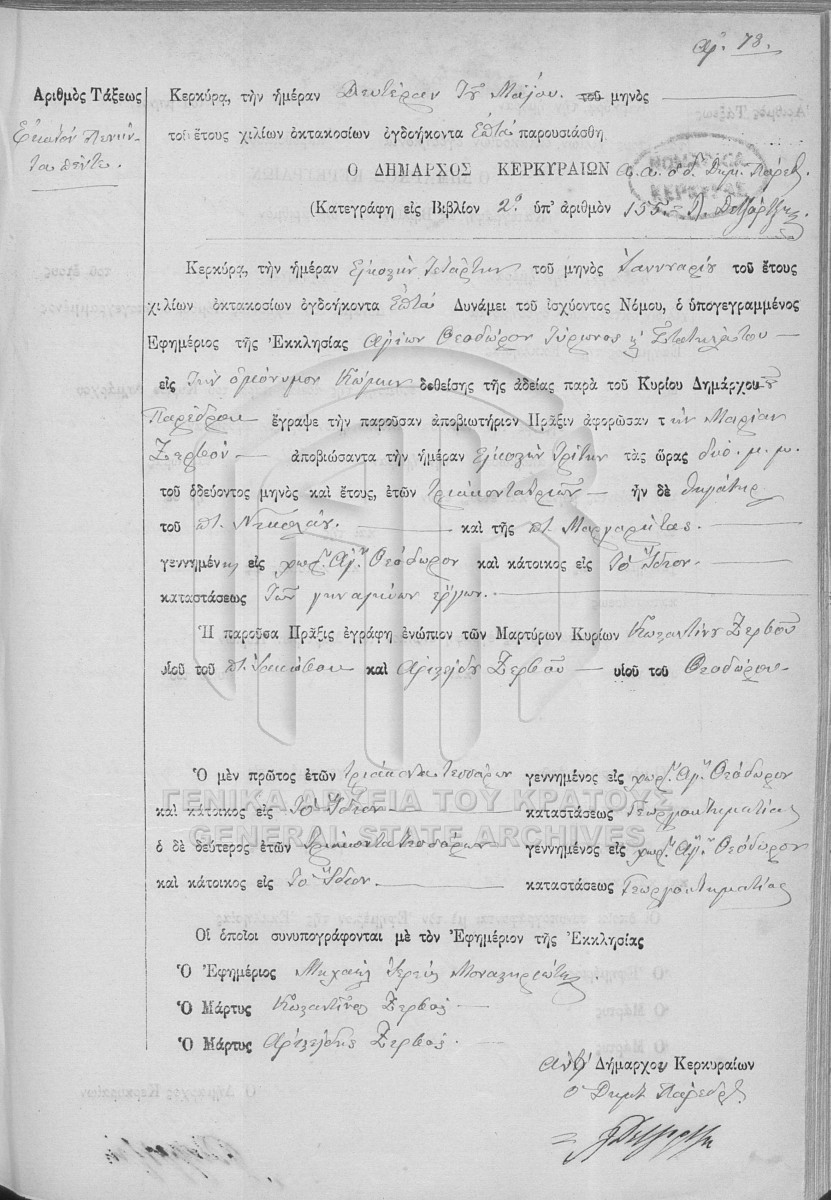 αρ. 78.
Ἀριθμὸς Τάξεως
Ἑκατὸν πενήν-
τα πέντε.
Κερκύρα, τὴν ἡμέραν Δευτέραν τοῦ Μαΐου. τοῦ μηνὸς
τοῦ ἔτους χιλίων ὀκτακοσίων ὀγδοήκοντα ἑπτὰ παρουσιάσθη
Ο ΔΗΜΑΡΧΟΣ ΚΕΡΚΥΡΑΙΩΝ
(Κατεγράφη εἰς Βιβλίον 2ον ὑπ' ἀριθμὸν 155.
Κερκύρα, τὴν ἡμέραν Εἰκοστὴν τετάρτην τοῦ μηνὸς Ἰαννουαρίου τοῦ ἔτους
χιλίων ὀκτακοσίων ὀγδοήκοντα ἑπτὰ Δυνάμει τοῦ ἰσχύοντος Νόμου, ὁ ὑπογεγραμμένος
Ἐφημέριος τῆς Ἐκκλησίας Ἁγίων Θεοδώρων Τύρωνος κ Στρατηλάτου
εἰς τὴν ὁμώνυμον Κώμην δοθείσης τῆς ἀδείας παρὰ τοῦ Κυρίου Δημάρχου
Παρέδρου ἔγραψε τὴν παροῦσαν ἀποβιωτήριον Πρᾶξιν ἀφορῶσαν τὴν Μαρίαν
Ζερβοῦ ἀποβιώσαντα τὴν ἡμέραν Εἰκοστὴν τρίτην τὰς ὥρας δύο. μ. μ.
τοῦ ὁδεύοντος μηνὸς καὶ ἔτους, ἐτῶν τριακοντατριῶν ἦν δὲ θυγάτηρ
τοῦ π. Νικολάου. καὶ τῆς π. Μαργαρίτας.
γεννημένη εἰς χωρ. Ἁγ. Θεόδωρον καὶ κάτοικος εἰς τὸ Ἴδιον.
καταστάσεως τῶν γυναικείων ἔργων.
Ἡ παροῦσα Πρᾶξις ἐγράφη ἐνώπιον τῶν Μαρτύρων Κυρίων Κωσταντίνου Ζερβοῦ
υἱοῦ τοῦ π. Ἰακώβου καὶ Ἀριστείδου Ζερβοῦ υἱοῦ τοῦ Θεοδώρου
Ὁ μὲν πρῶτος ἐτῶν τριάκοντα τεσσάρων γεννημένος εἰς χωρ. Ἁγ. Θεόδωρον
καὶ κάτοικος εἰς τὸ Ἴδιον καταστάσεως Γεωργοκτηματίας
ὁ δὲ δεύτερος ἐτῶν τριακοντατεσσάρων γεννημένος εἰς χωρ. Ἁγ. Θεόδωρον
καὶ κάτοικος εἰς τὸ Ἴδιον καταστάσεως Γεωργοκτηματίας
ΓΕΝΙΚΑ ΑΡΧΕΙΑ ΤΟΥ ΚΡΑΤΟΥΣ
GENERAL STATE ARCHIVES
Οἱ ὁποῖοι συνυπογράφονται μὲ τὸν Ἐφημέριον τῆς Ἐκκλησίας
Ὁ Ἐφημέριος Μιχαὴλ Ἱερεὺς
Ὁ Μάρτυς Κωσταντῖνος Ζερβός
Ὁ Μάρτυς Ἀριστείδης Ζερβός.
Δήμαρχου Κερκυραίων
ὁ Δημ. Πάρεδρ.